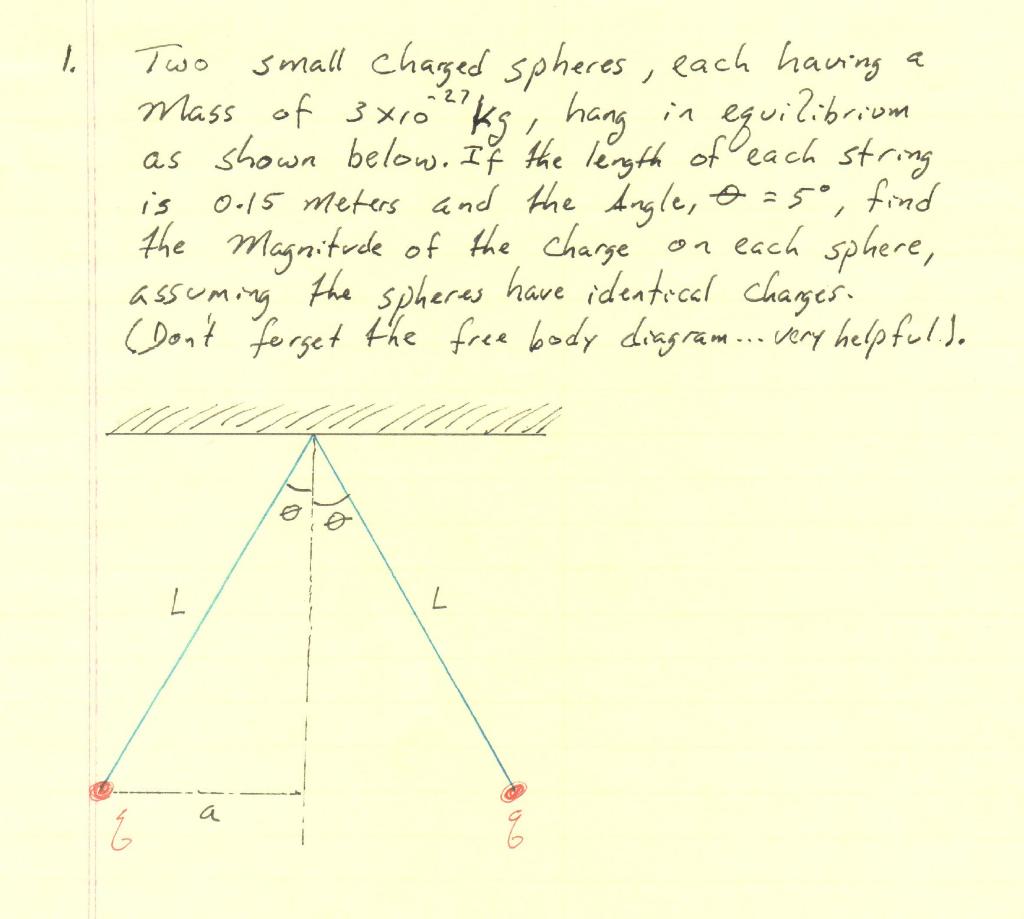 1. Two small charged spheres, each having a
mass of 3x10⁻²⁷ kg, hang in equilibrium
as shown below. If the length of each string
is 0.15 meters and the Angle, θ = 5°, find
the Magnitude of the charge on each sphere,
assuming the spheres have identical charges.
(Don't forget the free body diagram... very helpful!).
θ θ
L L
a
q q